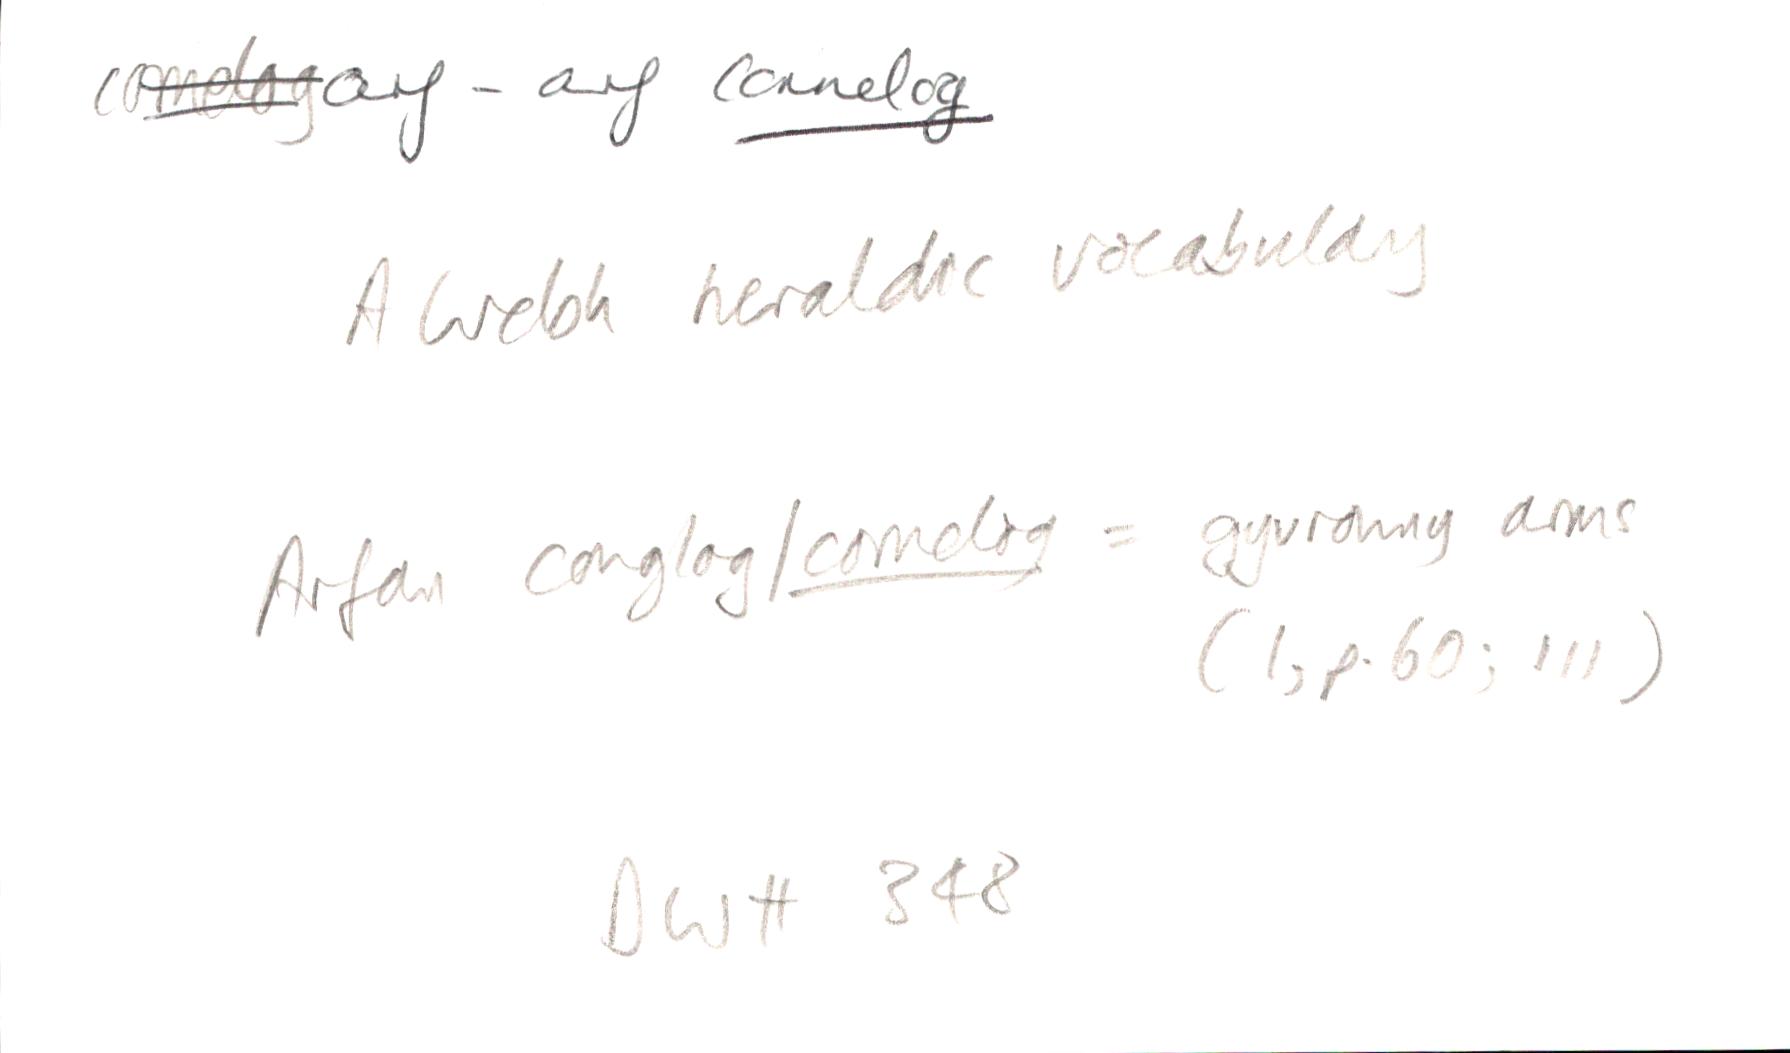 cornelog arf - arf cornelog
A Welsh heraldic vocabulary
Arfau conglog/cornelog = gyuronny arms
(1, p.60; 111)
DWH 348